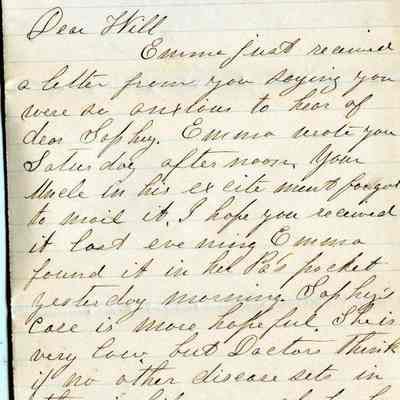 Dear Will
Emma just received
a letter from you saying you
were so anxious to hear of
dear Sophey. Emma wrote you
Saturday afternoon, Your
Uncle in his excitement forgot
to mail it, I hope you received
it last evening Emma
found it in her Pa's pocket
yesterday morning. Sophey's
case is more hopeful. She is
very low, but Doctors think
if no other disease sets in